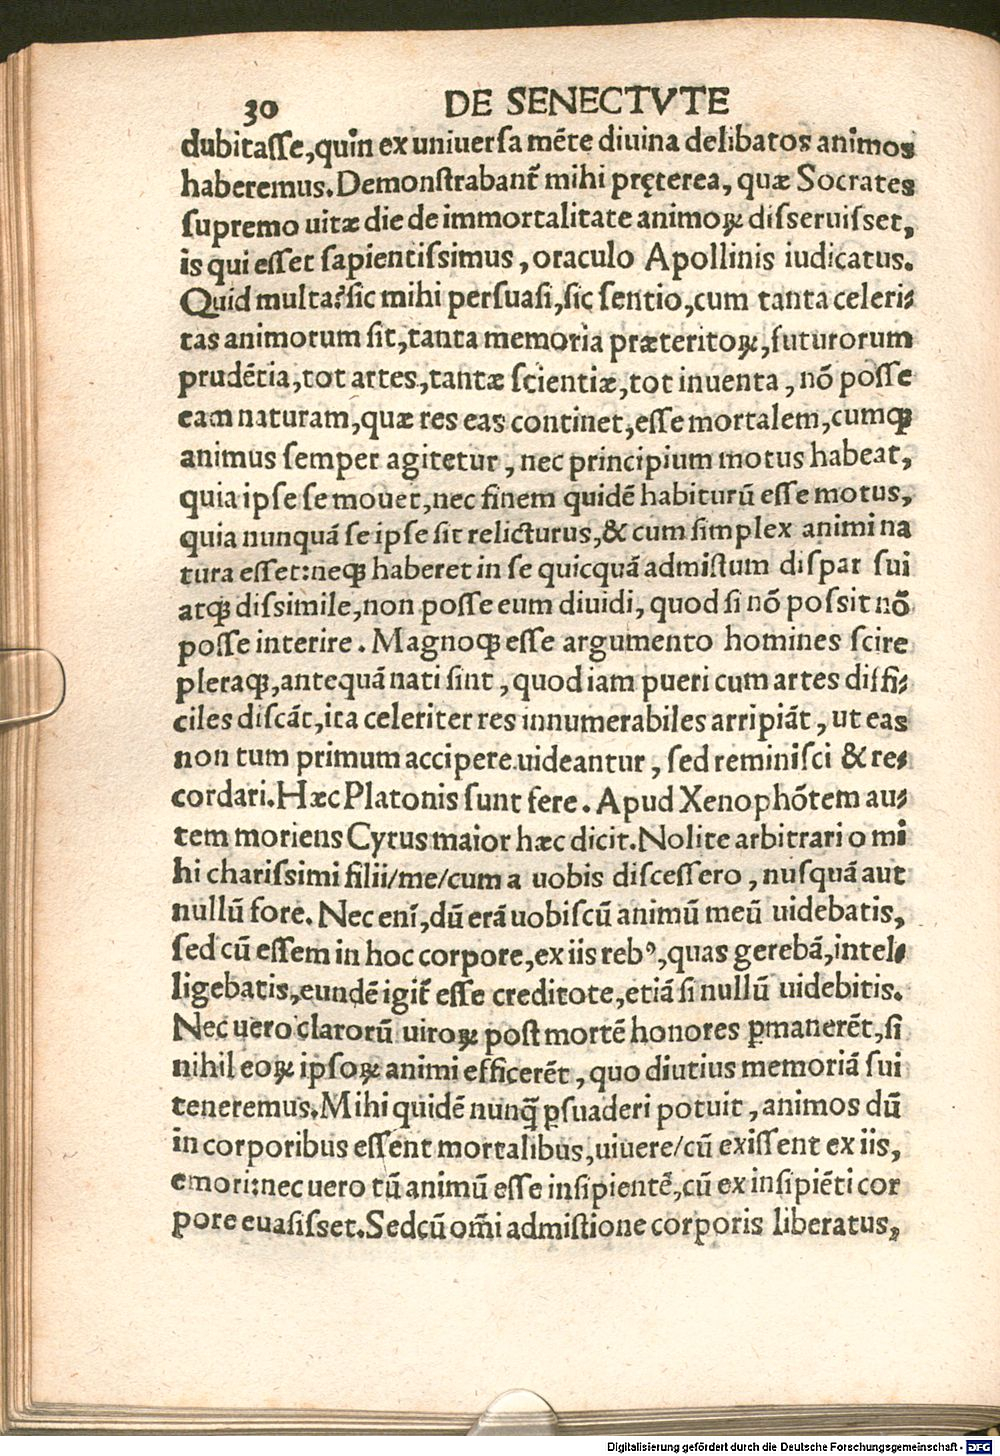 30 DE SENECTVTE
dubitaſſe, quin ex uniuerſa mẽte diuina delibatos animos
haberemus. Demonſtrabant᷑ mihi pręterea, quæ Socrates
ſupremo uitæ die de immortalitate animoꝝ diſſeruiſſet,
is qui eſſet ſapientiſſimus, oraculo Apollinis iudicatus.
Quid multa? ſic mihi perſuaſi, ſic ſentio, cum tanta celeri⸗
tas animorum ſit, tanta memoria præteritoꝝ, futurorum
prudẽtia, tot artes, tantæ ſcientiæ, tot inuenta, nõ poſſe
eam naturam, quæ res eas continet, eſſe mortalem, cumqꝫ
animus ſemper agitetur, nec principium motus habeat,
quia ipſe ſe mouet, nec finem quidẽ habiturũ eſſe motus,
quia nunquã ſe ipſe ſit relicturus, & cum ſimplex animi na
tura eſſet: neqꝫ haberet in ſe quicquã admiſtum diſpar ſui
atqꝫ diſſimile, non poſſe eum diuidi, quod ſi nõ poſſit nõ
poſſe interire. Magnoqꝫ eſſe argumento homines ſcire
pleraqꝫ, antequã nati ſint, quod iam pueri cum artes diffi⸗
ciles diſcãt, ita celeriter res innumerabiles arripiãt, ut eas
non tum primum accipere uideantur, ſed reminiſci & re⸗
cordari. Hæc Platonis ſunt fere. Apud Xenophõtem au⸗
tem moriens Cyrus maior hæc dicit. Nolite arbitrari o mi
hi chariſſimi filii/me/cum a uobis diſceſſero, nuſquã aut
nullũ fore. Nec enĩ, dũ erã uobiſcũ animũ meũ uidebatis,
ſed cũ eſſem in hoc corpore, ex iis rebꝰ, quas gerebã, intel⸗
ligebatis, eundẽ igit᷑ eſſe creditote, etiã ſi nullũ uidebitis.
Nec uero clarorũ uiroꝝ poſt mortẽ honores ꝑmanerẽt, ſi
nihil eoꝝ ipſoꝝ animi efficerẽt, quo diutius memoriã ſui
teneremus. Mihi quidẽ nunq̃ ꝑſuaderi potuit, animos dũ
in corporibus eſſent mortalibus, uiuere/cũ exiſſent ex iis,
emori: nec uero tũ animũ eſſe inſipientẽ, cũ ex inſipiẽti cor
pore euaſiſſet. Sed cũ om̃i admiſtione corporis liberatus,
Digitalisierung gefördert durch die Deutsche Forschungsgemeinschaft - DFG